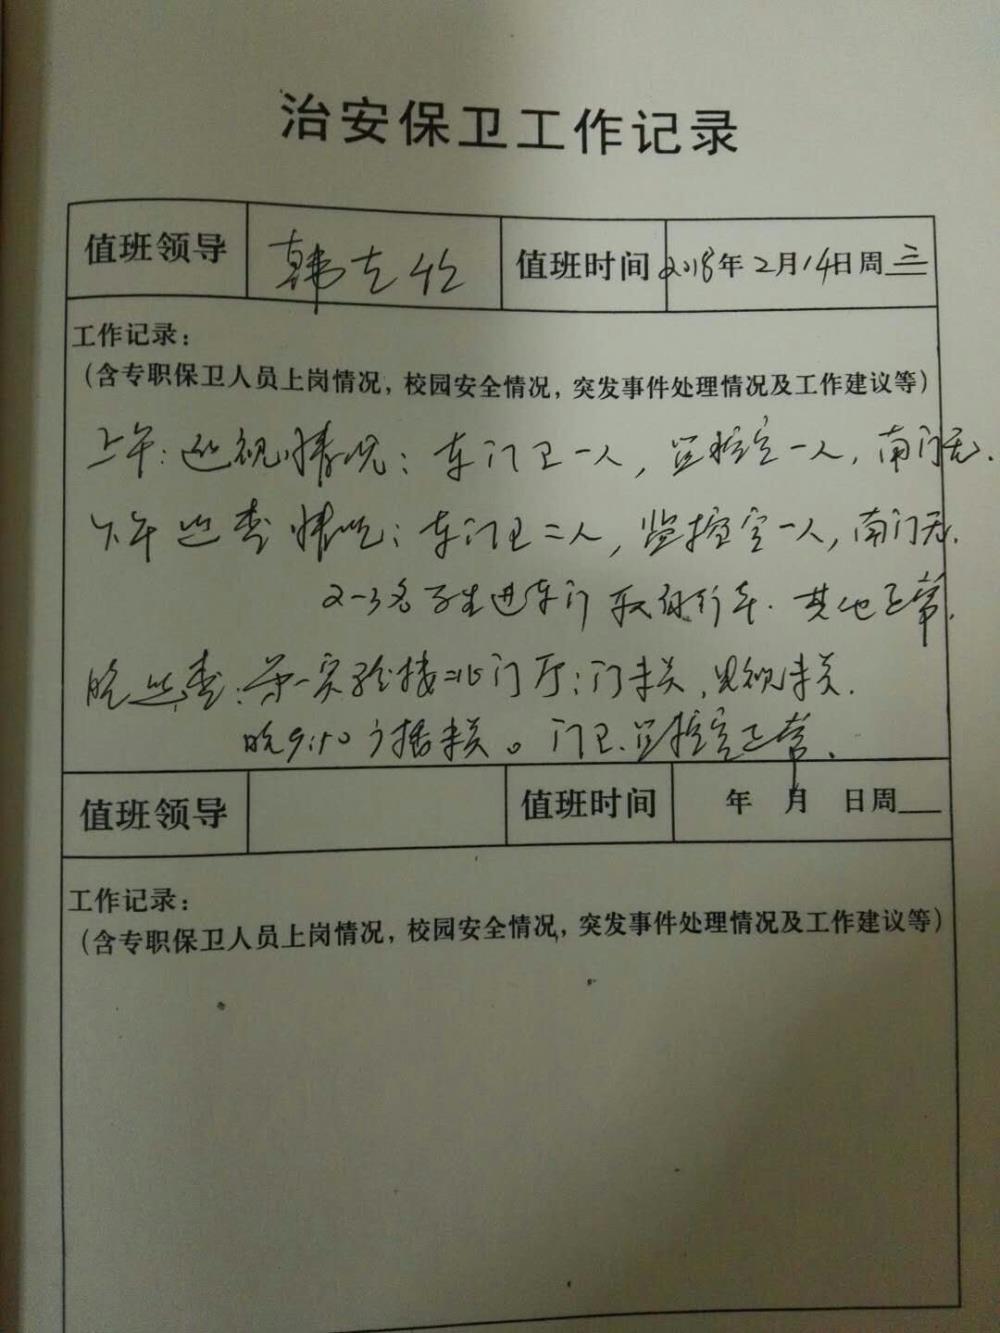 治安保卫工作记录
值班领导 韩 值班时间 2018年2月14日周三
工作记录：
（含专职保卫人员上岗情况，校园安全情况，突发事件处理情况及工作建议等）
上午：巡视情况：东门卫一人，监控室一人，南门无.
下午巡查情况：东门卫二人，监控室一人，南门无.
2-3名学生进东门取自行车.其他正常.
晚巡查：第一实验楼北门厅：门未关，电视未关.
晚9:50广播未关。门卫、监控室正常.
值班领导 值班时间 年 月 日周
工作记录：
（含专职保卫人员上岗情况，校园安全情况，突发事件处理情况及工作建议等）